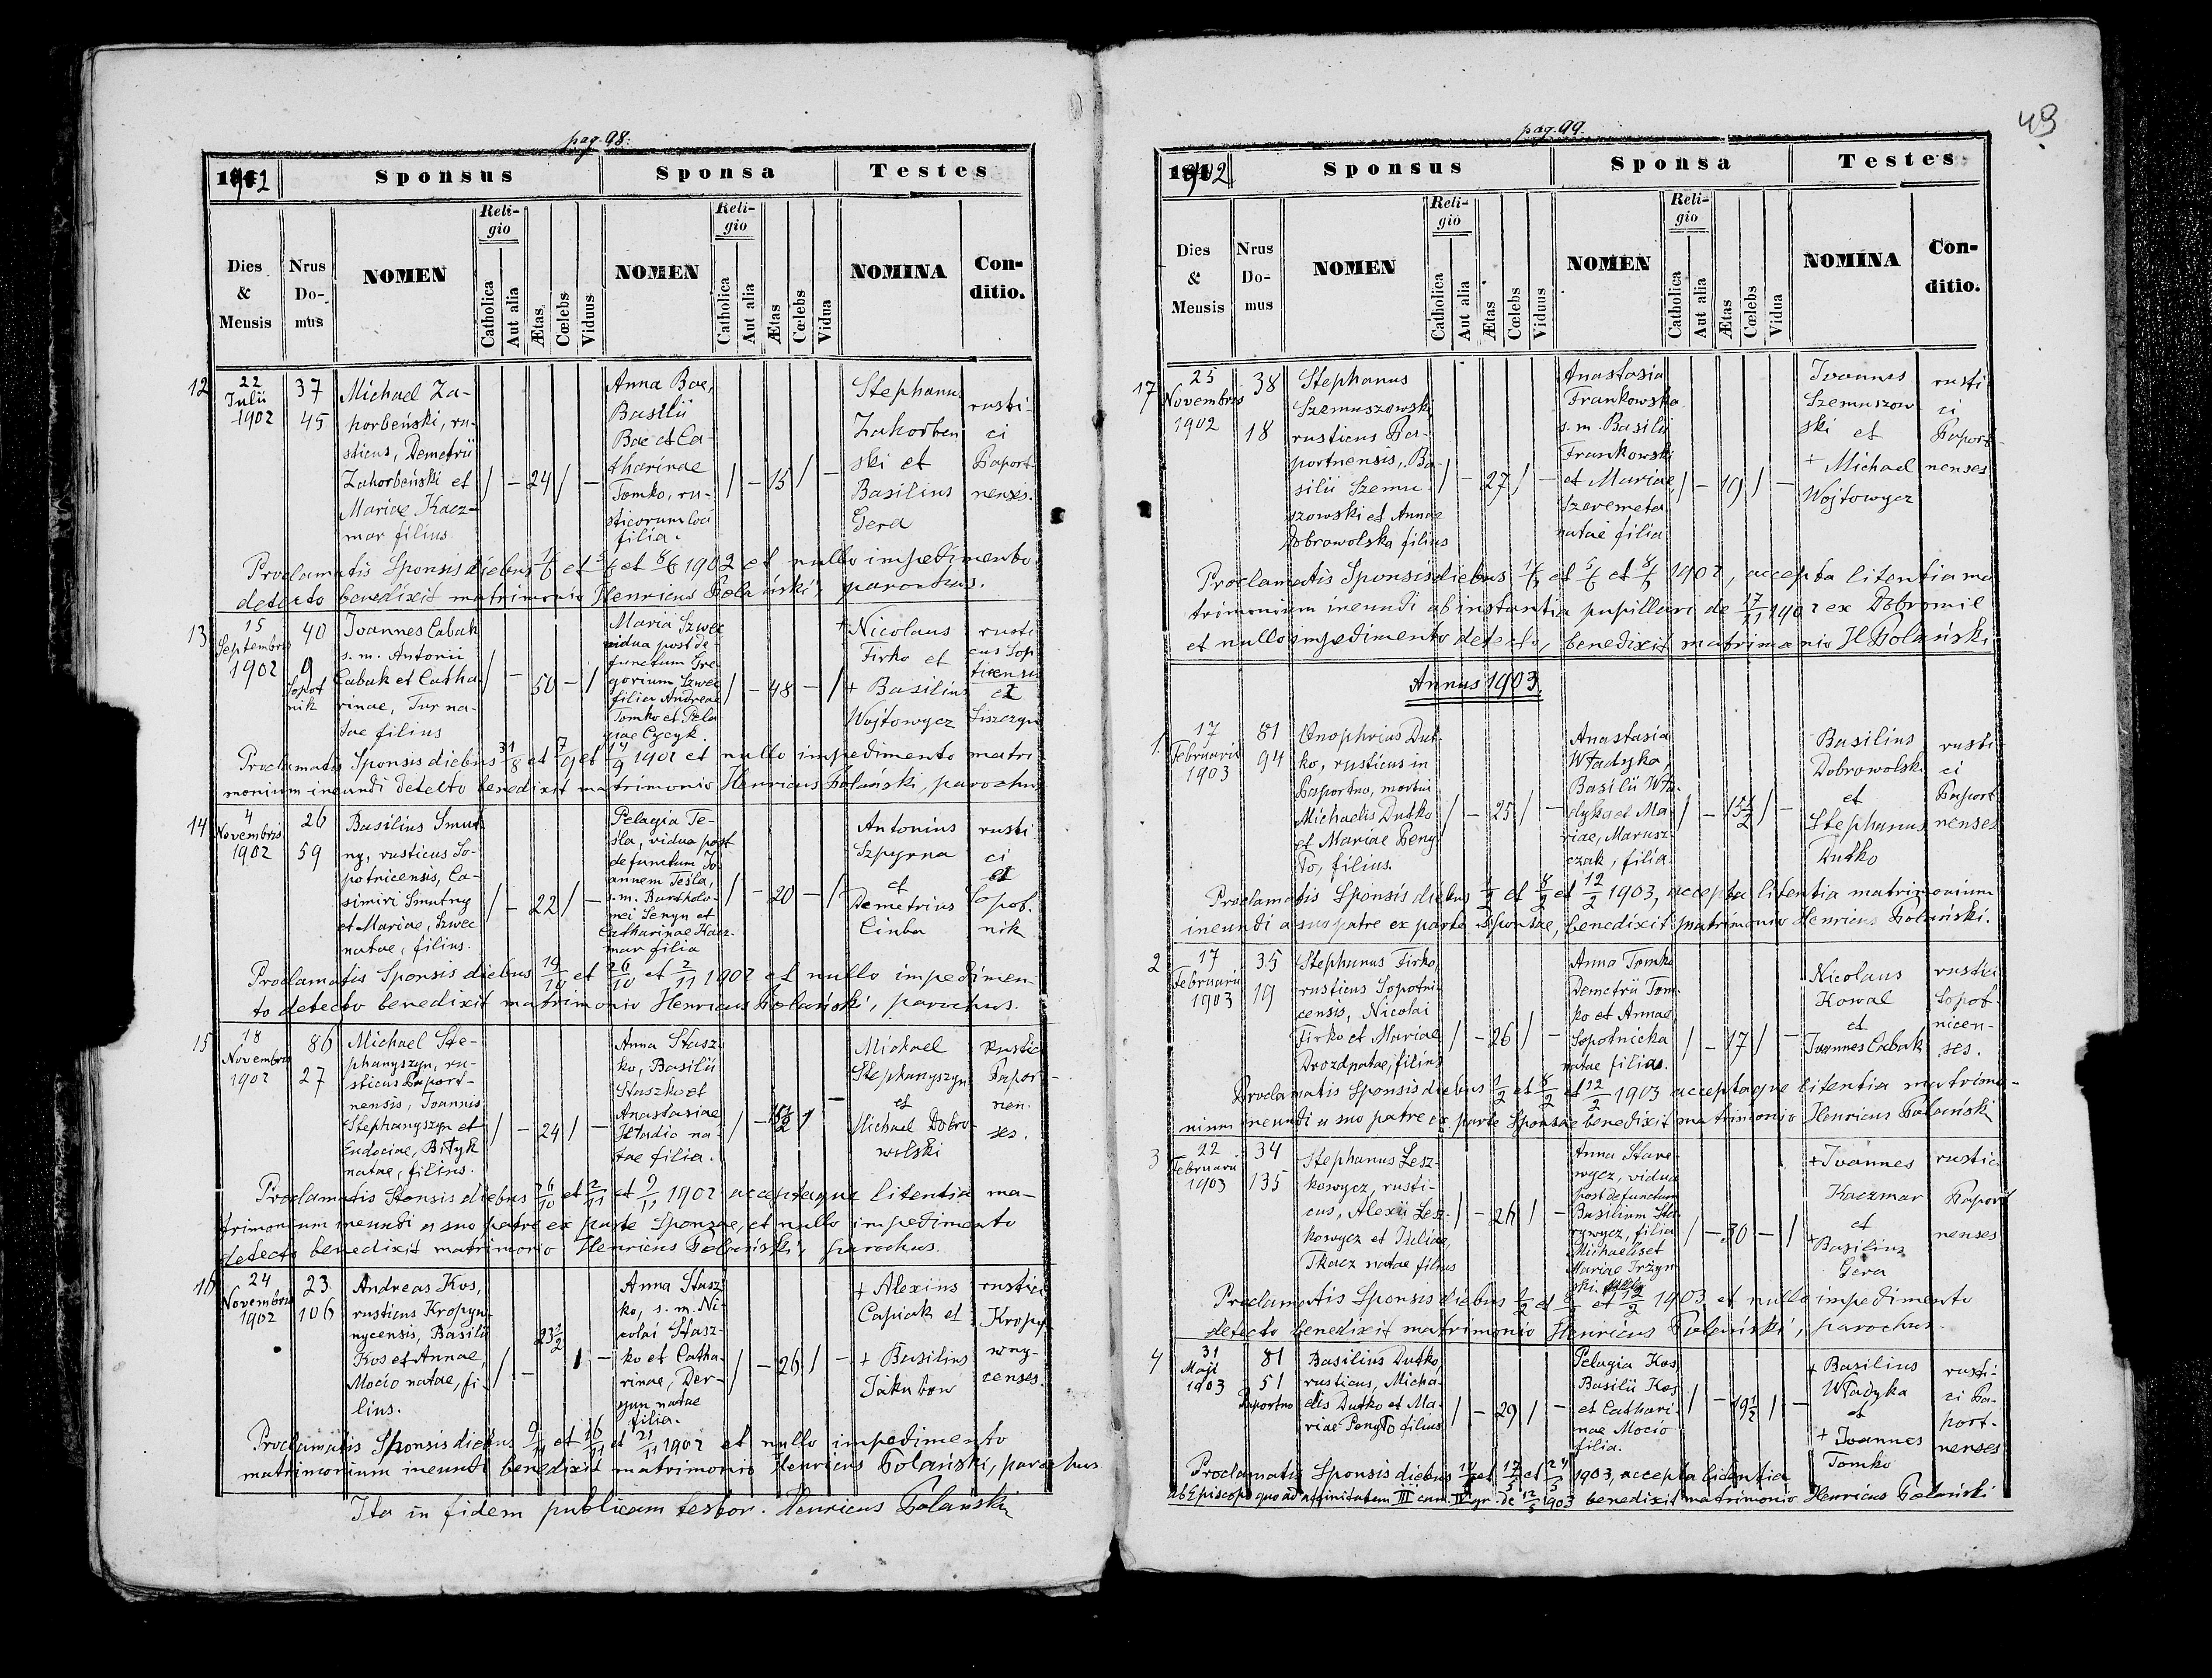 pag. 98.
1902 Sponsus Sponsa Testes
Dies & Mensis Nrus Domus NOMEN Religio Catholica Aut alia Ætas Cœlebs Viduus NOMEN Religio Catholica Aut alia Ætas Cœlebs Vidua NOMINA Conditio.
12
22
Julii
1902
37
45
Michael Za-
horbeński, ru-
sticus, Demetrii
Zahorbeński et
Mariae Kacz-
mar filius
/ - 24 / -
Anna Bac,
Basilii
Bac et Ca-
tharinae
Tomko, ru-
sticorum loci
filia.
/ - 15 / -
Stephanus
Zahorben
ski et
Basilius
Gera
rusti-
ci
Paport-
nenses.
Proclamatis Sponsis diebus 1/6 et 5/6 et 8/6 1902 et nullo impedimento
detecto benedixit matrimonio Henricus Polański, parochus.
13
15
Septembris
1902
40
9
Sopot
nik
Ivannes Cabak
s. m. Antonii
Cabak et Catha-
rinae, Tur na-
tae filius
/ - 50 - /
Maria Szwec
vidua post de-
functum Gre-
gorium Szwec
filia Andreae
Tomko et Pela
giae Cycyk.
/ - 48 - /
+ Nicolaus
Firko et
+ Basilius
Wojtowycz
rusti
cus Sop
ticensis
et
Liszczyn
Proclamatis Sponsis diebus 31/8 et 7/9 et 14/9 1902 et nullo impedimento matri
monium ineundi detecto benedixit matrimonio Henricus Polański, parochus
14
4
Novembris
1902
26
59
Basilius Smut
ny, rusticus So-
potnicensis, Ca-
simiri Smutny
et Mariae, Szwec
natae, filius.
/ - 22 / -
Pelagia Te-
sla, vidua post
defunctum Jo-
annem Tesla,
s. m. Bartholo-
mei Senyn et
Catharinae Kacz-
mar filia
/ - 20 - /
Antonius
Szpyrna
et
Demetrius
Ciuba
rusti
ci
et
Sopot-
nik
Proclamatis Sponsis diebus 19/10 et 26/10 et 2/11 1902 et nullo impedimen-
to detecto benedixit matrimonio Henricus Polański, parochus.
15
18
Novembris
1902
86
27
Michael Ste-
phanyszyn, ru-
sticus Paport-
nensis, Ioannis
Stephanyszyn et
Eudociae, Bityk
natae, filius.
/ - 24 / -
Anna Stasz
ko, Basilii
Staszko et
Anastasiae
Hladio na-
tae filia.
/ - 15 1/2 / -
Michael
Stephanyszyn
et
Michael Dobro-
wolski
rustici
Papor-
nen-
ses.
Proclamatis Sponsis diebus 26/10 et 2/11 et 9/11 1902 acceptaque litentia ma-
trimonium ineundi a suo patre ex parte Sponsae, et nullo impedimento
detecto benedixit matrimonio Henricus Polański, parochus.
16
24
Novembris
1902
23
106
Andreas Kos,
rusticus Kropyw-
nycensis, Basilii
Kos et Annae,
Mocio natae, fi-
lius.
/ - 23 1/2 / -
Anna Stasz
ko, s. m. Ni-
colai Stasz-
ko et Catha-
rinae, Der-
natae
filia.
/ - 26 / -
+ Alexius
Capiak et
+ Basilius
Jakubow
rustici
Kropy
wny-
censes.
Proclamatis Sponsis diebus 9/11 et 16/11 et 21/11 1902 et nullo impedimento
matrimonium ineundi benedixit matrimonio Henricus Polański, parochus
Ita in fidem publicam testor. Henricus Polański
pag. 99.
49
1902 Sponsus Sponsa Testes
Dies & Mensis Nrus Domus NOMEN Religio Catholica Aut alia Ætas Cœlebs Viduus NOMEN Religio Catholica Aut alia Ætas Cœlebs Vidua NOMINA Conditio.
17
25
Novembris
1902
38
18
Stephanus
Szemuszowski
rusticus Pa-
portnensis, Ba-
silii Szemu
szowski et Annae
Dobrowolska filius
/ - 27 / -
Anastasia
Frankowska
s. m. Basilii
Frankowski
et Mariae,
Szeremeta
natae filia
/ - 19 / -
Ivannes
Szemuszow
ski et
+ Michael
Wojtowycz
rusti
ci
Paport-
nenses
Proclamatis Sponsis diebus 1/6 et 5/6 et 8/6 1902, accepta litentia ma
trimonium ineundi ab instantia pupillari de 17/11 1902 ex Dobromil
et nullo impedimento detecto, benedixit matrimonio H Polański
Annus 1903.
1.
17
Februarii
1903
81
94
Onophrius Dut-
ko, rusticus in
Paportno, mortui
Michaelis Dutko
et Mariae Peny-
to, filius.
/ - 25 / -
Anastasia
Władyka,
Basilii Wła-
dyka et Ma-
riae, Marusz-
czak, filia.
/ - 15 1/2 / -
Basilius
Dobrowolski
et
Stephanus
Dutko
rusti
ci
Paport
nenses
Proclamatis Sponsis diebus 1/2 et 8/2 et 12/2 1903, accepta litentia matrimonium
ineundi a suo patre ex parte Sponsae, benedixit matrimonio Henricus Polański.
2
17
Februarii
1903
35
19
Stephanus Firko,
rusticus Sopotni-
censis, Nicolai
Firko et Mariae
Drozd natae, filius
/ - 26 / -
Anna Tomko
Demetrii Tom-
ko et Annae,
Sopotnicka
natae filia.
/ - 17 / -
Nicolaus
Kowal
et
Ivannes Cabak
rustici
Sopot-
nicen-
ses.
Proclamatis Sponsis diebus 1/2 et 8/2 et 12/2 1903 acceptaque litentia matrimo-
nium ineundi a suo patre ex parte Sponsae benedixit matrimonio Henricus Polański
3
22
Februarii
1903
34
135
Stephanus Lesz-
kowycz, rusti-
cus, Alexii Lesz-
kowycz et Juliae,
Tkacz natae filius
/ - 26 / -
Anna Stare-
wycz, vidua
post defunctum
Basilium Sta-
rywycz, filia
Michaelis et
Mariae Trzyn
ski
/ - 30 - /
+ Ivannes
Kaczmar
et
+ Basilius
Gera
rustici
Paport
nenses
Proclamatis Sponsis diebus 1/2 et 8/2 et 12/2 1903 et nullo impedimento
detecto benedixit matrimonio Henricus Polański, parochus.
4
31
Maji
1903
81
51
Paportno
Basilius Dutko,
rusticus, Micha-
elis Dutko et Ma-
riae Penyto filius
/ - 29 / -
Pelagia Kos
Basilii Kos
et Cathari-
nae Mocio
filia.
/ - 19 1/2 / -
+ Basilius
Władyka
et
+ Ivannes
Tomko
rusti-
ci Pa-
port-
nenses
Proclamatis Sponsis diebus et 17/5 et 24/5 1903, accepta licentia
ab Episcopo quoad affinitatem III cum IV gr. de 12/5 1903 benedixit matrimonio Henricus Polański